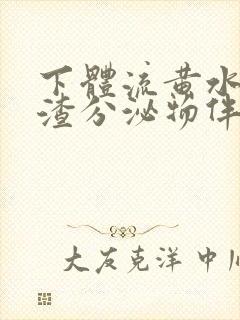 下體流黃水
渣分泌物伴
大友克洋 中川